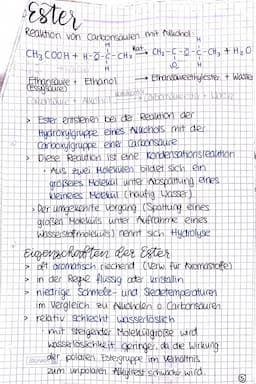 Ester
Reaktion von Carbonsäuren mit Alkohol:
CH₃COOH + H-O-C-CH₃ Kat. → CH₃-C-O-C-CH₃ + H₂O
Ethansäure + Ethanol → Ethansäureethylester + Wasser
(Essigsäure)
Carbonsäure + Alkohol → Carbonsäureester + Wasser
> Ester entstehen bei der Reaktion der
Hydroxylgruppe eines Alkohols mit der
Carboxylgruppe einer Carbonsäure
> Diese Reaktion ist eine Kondensationsreaktion
• Aus zwei Molekülen bildet sich ein
größeres Molekül unter Abspaltung eines
kleineren Moleküls (häufig Wasser)
> Der umgekehrte Vorgang (Spaltung eines
großen Moleküls unter Aufnahme eines
Wasserstoffmoleküls) nennt sich Hydrolyse
Eigenschaften der Ester
> oft aromatisch riechend (Verw. für Aromastoffe)
> in der Regel flüssig oder kristallin
> niedrige Schmelz- und Siedetemperaturen
im Vergleich zu Alkoholen o. Carbonsäuren
> relativ schlecht wasserlöslich
• mit steigender Molekülgröße wird
Wasserlöslichkeit geringer, da die Wirkung
der polaren Estergruppe im Verhältnis
zum unpolaren Alkylrest schwächer wird.